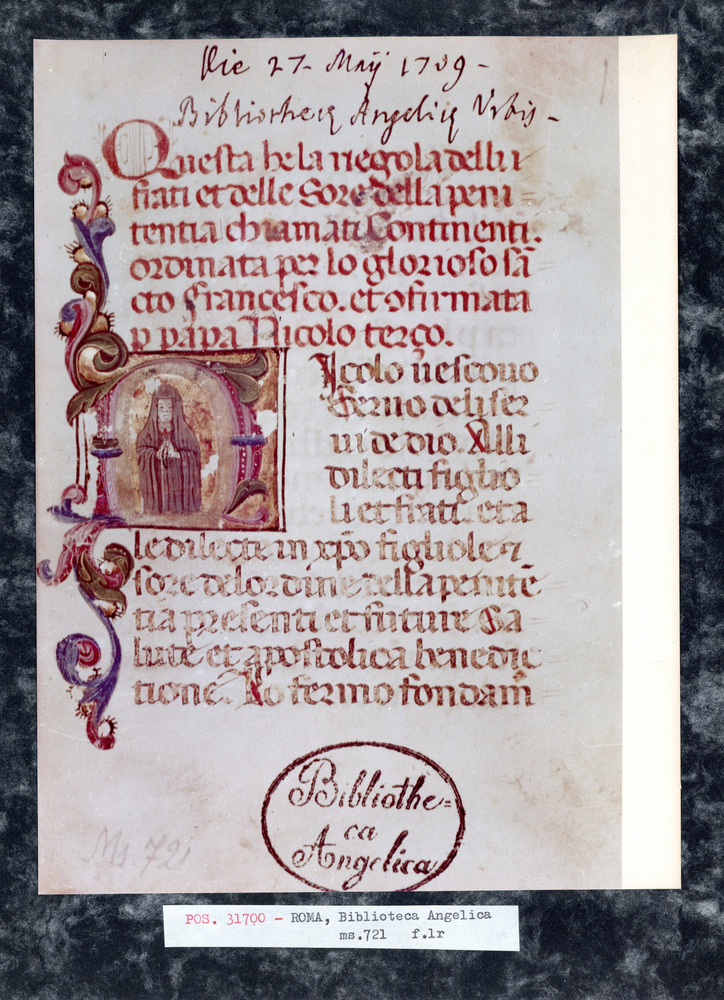 Die 27 Maÿ 1789 -
Bibliothecę Angelicę Urbis -
Questa he la riegola delli
frati et delle Sore della peni =
tentia chiamati Continenti.
ordinata per lo glorioso sā
cto Francesco. et ꝯfirmata
p papa Nicolo terço.
Nicolo uescouo
Seruo deli ser
ui de dio. Alli
dilecti figlio
li et frati. et a
le dilecte in xp̄o figliole ⁊
sore del ordine della penitē
tia presenti et future Sa
lute et apostolica benedic
tione. Lo fermo fondam̄
Bibliothe=
ca
Angelica
Ms 721
POS. 31700 - ROMA, Biblioteca Angelica
ms.721 f.1r